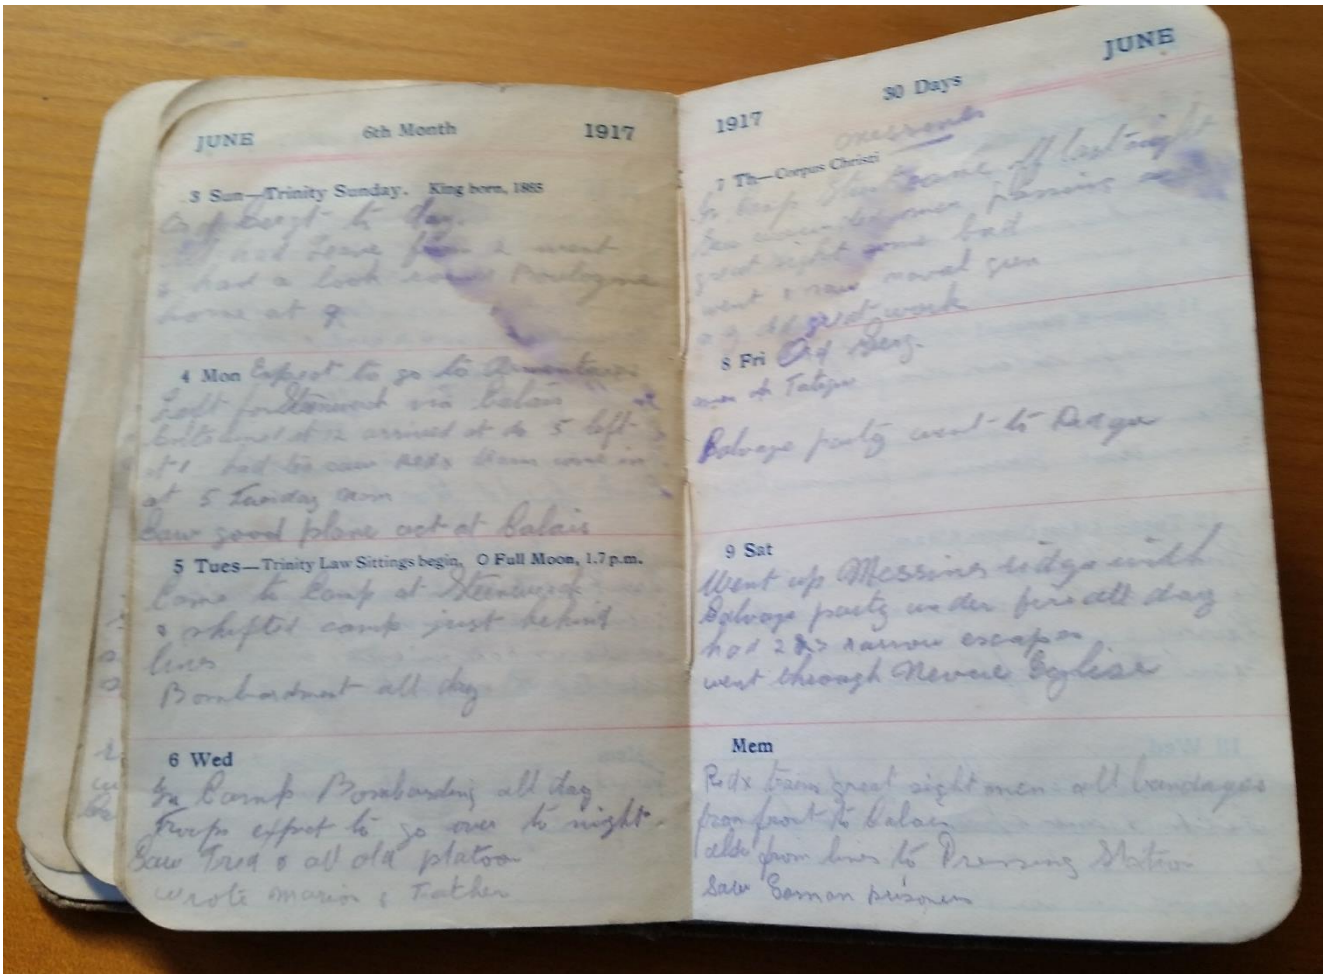 JUNE 6th Month 1917
3 Sun—Trinity Sunday. King born, 1865
to day.
had leave from 2 went
& had a look round Boulogne
home at 9
4 Mon Expect to go to Armentieres
Left for Steenwerck via Calais
at 2 arrived at 5 left
at 1 had to saw Redx train come in
at 5 Tuesday am
Saw good plane act at Calais
5 Tues—Trinity Law Sittings begin, O Full Moon, 1.7 p.m.
Came to Camp at Steenwerck
& shifted camp just behind
lines
Bombardment all day
6 Wed
In Camp Bombarding all day
Troops expect to go over to night.
Saw Fred & all old platoon
wrote Marion & Father
1917 30 Days JUNE
Messines
7 Th—Corpus Christi
In Camp Stunt came off last night
Saw wounded men passing
great sight some bad
went & saw naval gun
great work
8 Fri Ord Serg.
men on Fatigue
Salvage party went to
9 Sat
Went up Messines ridge with
Salvage party under fire all day
had 2 narrow escapes
went through Neuve Eglise
Mem
Redx trains great sight men all bandages
from front to Calais
also from lines to Dressing Station
Saw German prisoners